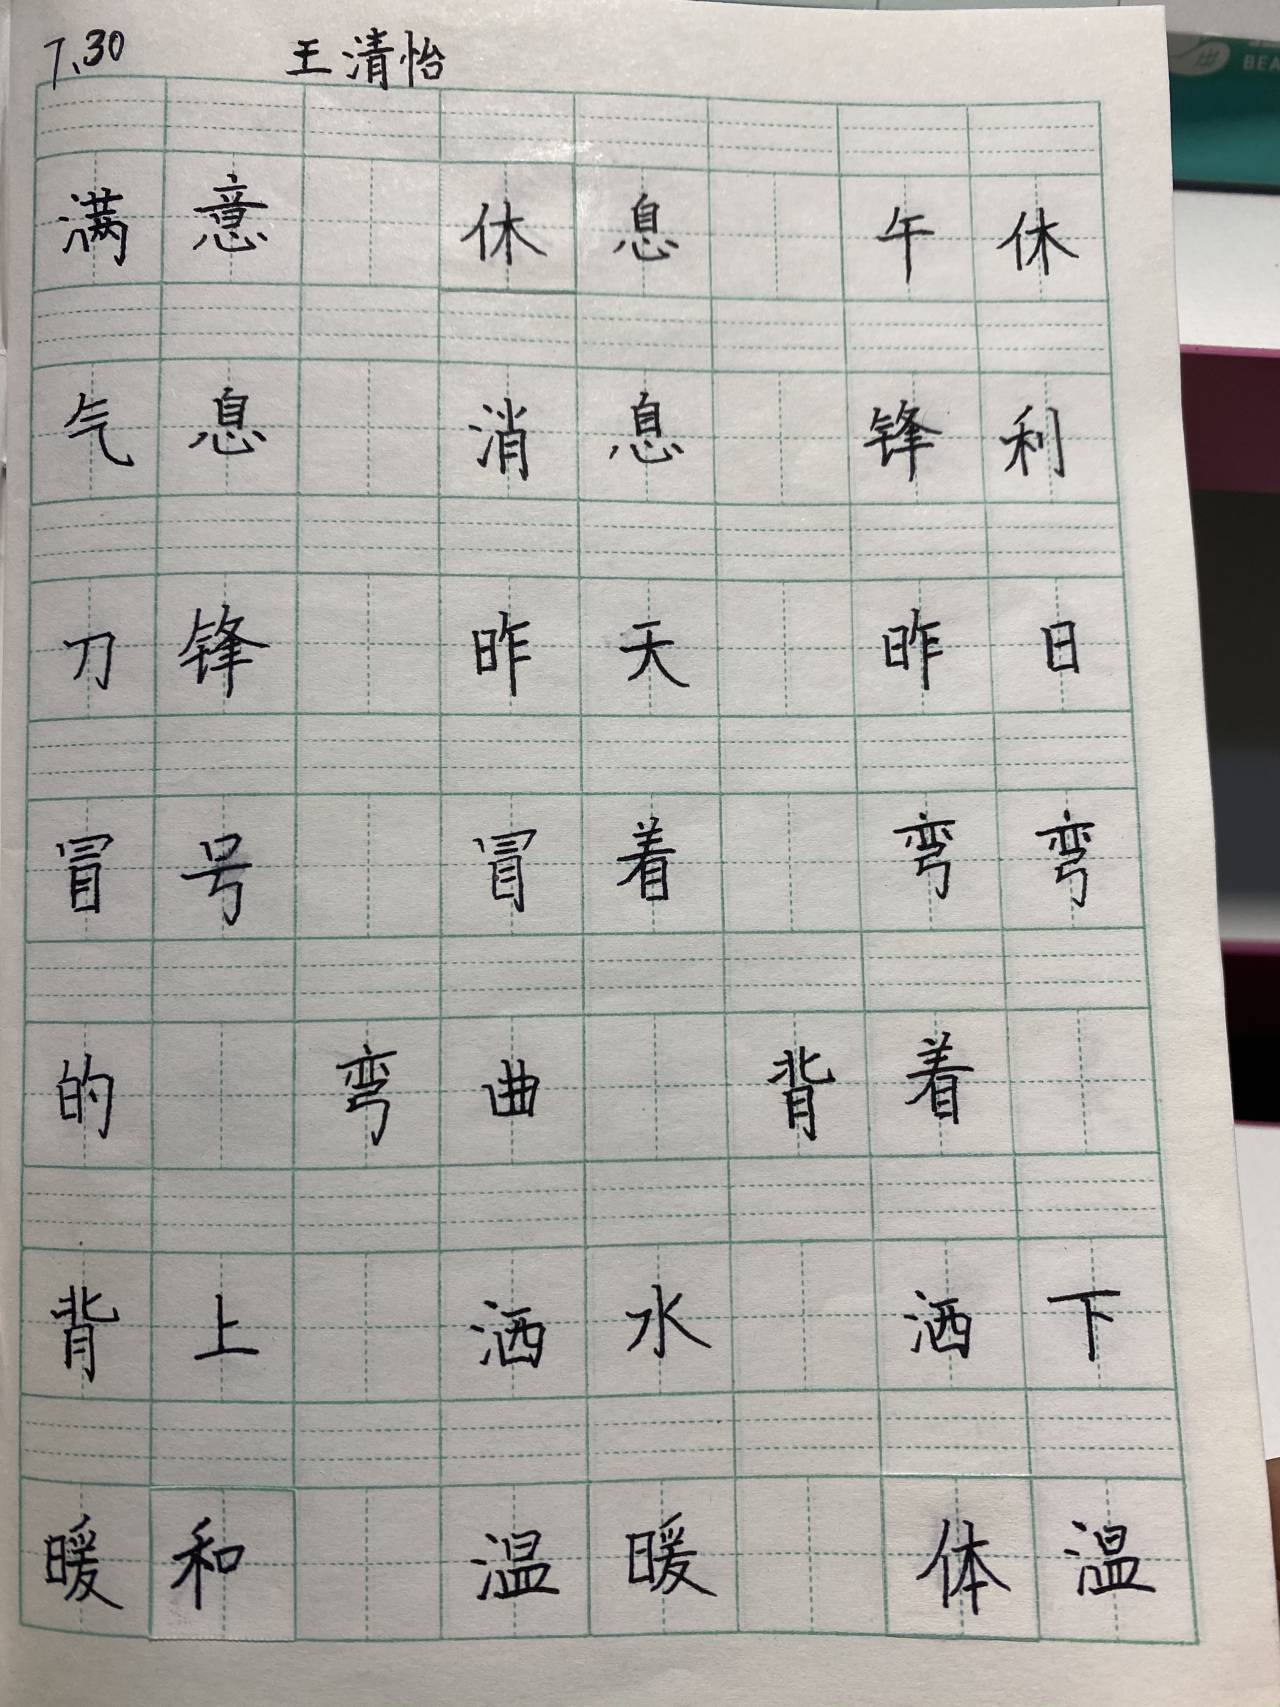 7.30 王清怡
满意 休息 午休
气息 消息 锋利
刀锋 昨天 昨日
冒号 冒着 弯弯
的 弯曲 背着
背上 洒水 洒下
暖和 温暖 体温
BEA